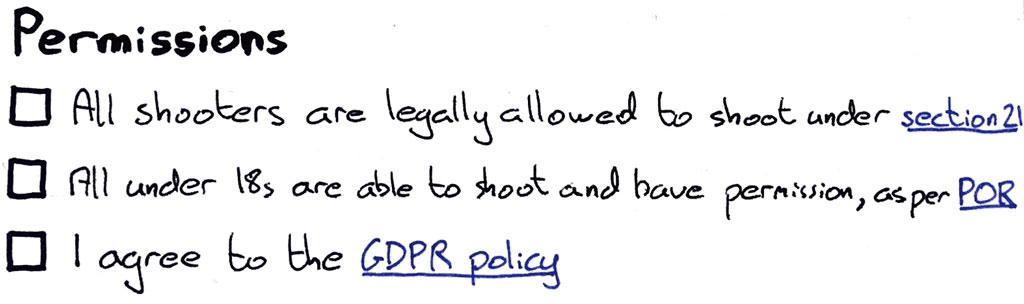 Permissions
All shooters are legally allowed to shoot under section 21
All under 18s are able to shoot and have permission, as per POR
I agree to the GDPR policy